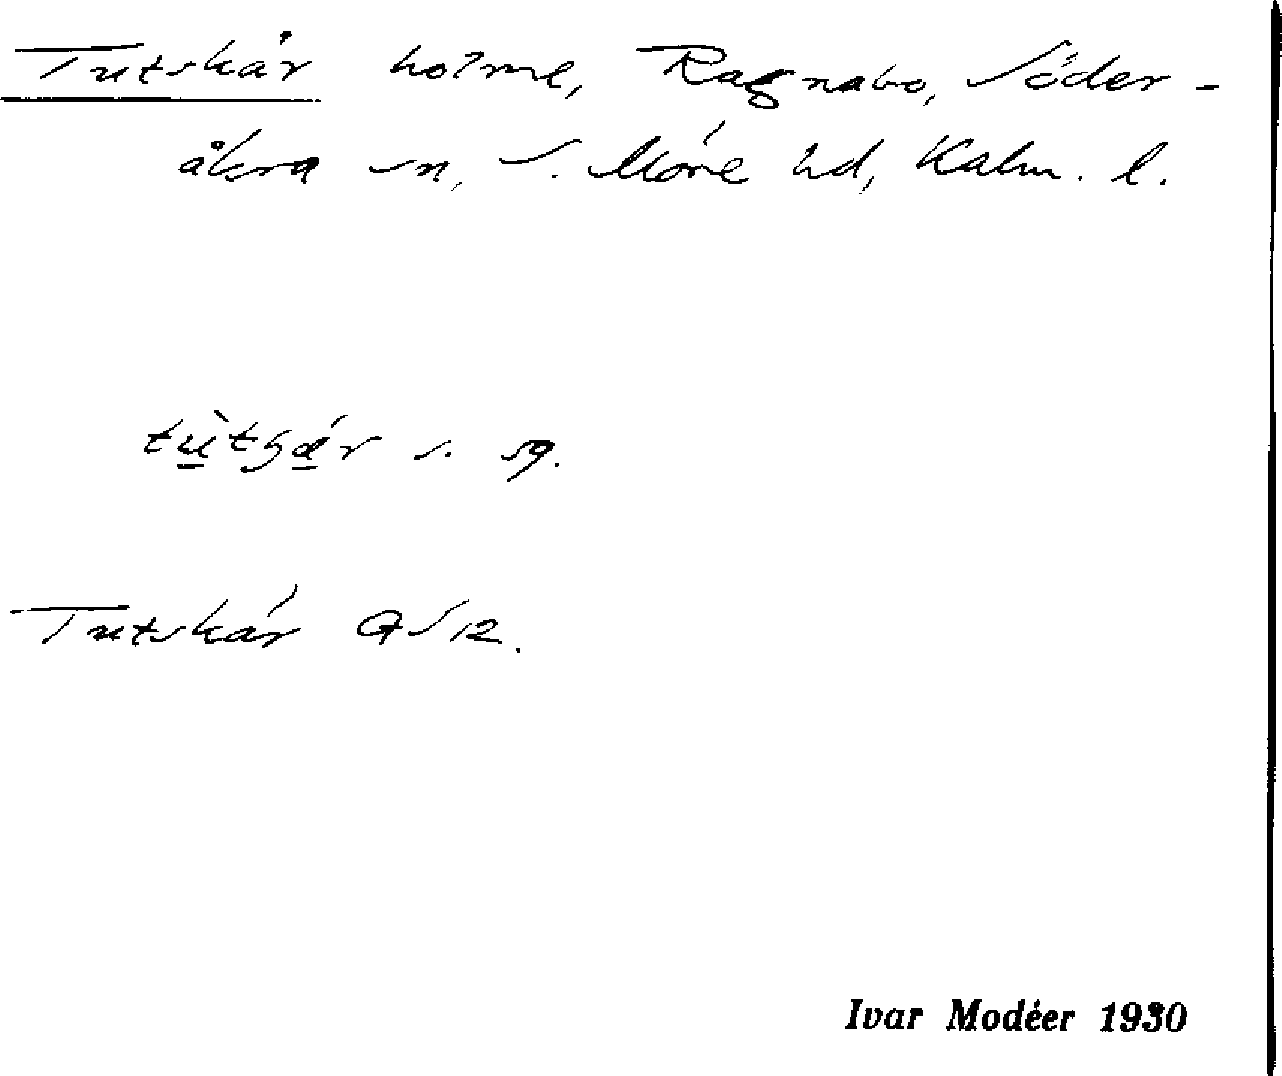 Tutskär holme, Ragnabo, Söder-
åkra sn, S. Möre hd, Kalm. l.
s. sg.
Tutskär GS 12.
Ivar Modéer 1930